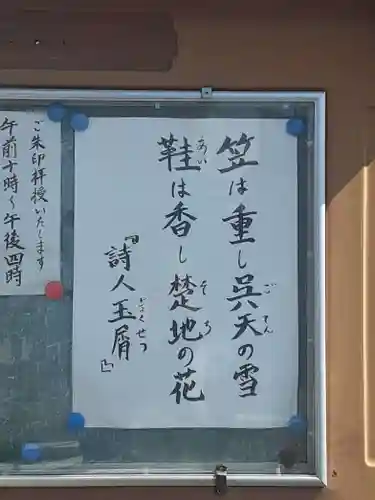 笠は重し呉天の雪
鞋は香し楚地の花
『詩人玉屑』
ご朱印拝授いたします
午前十時〜午後四時